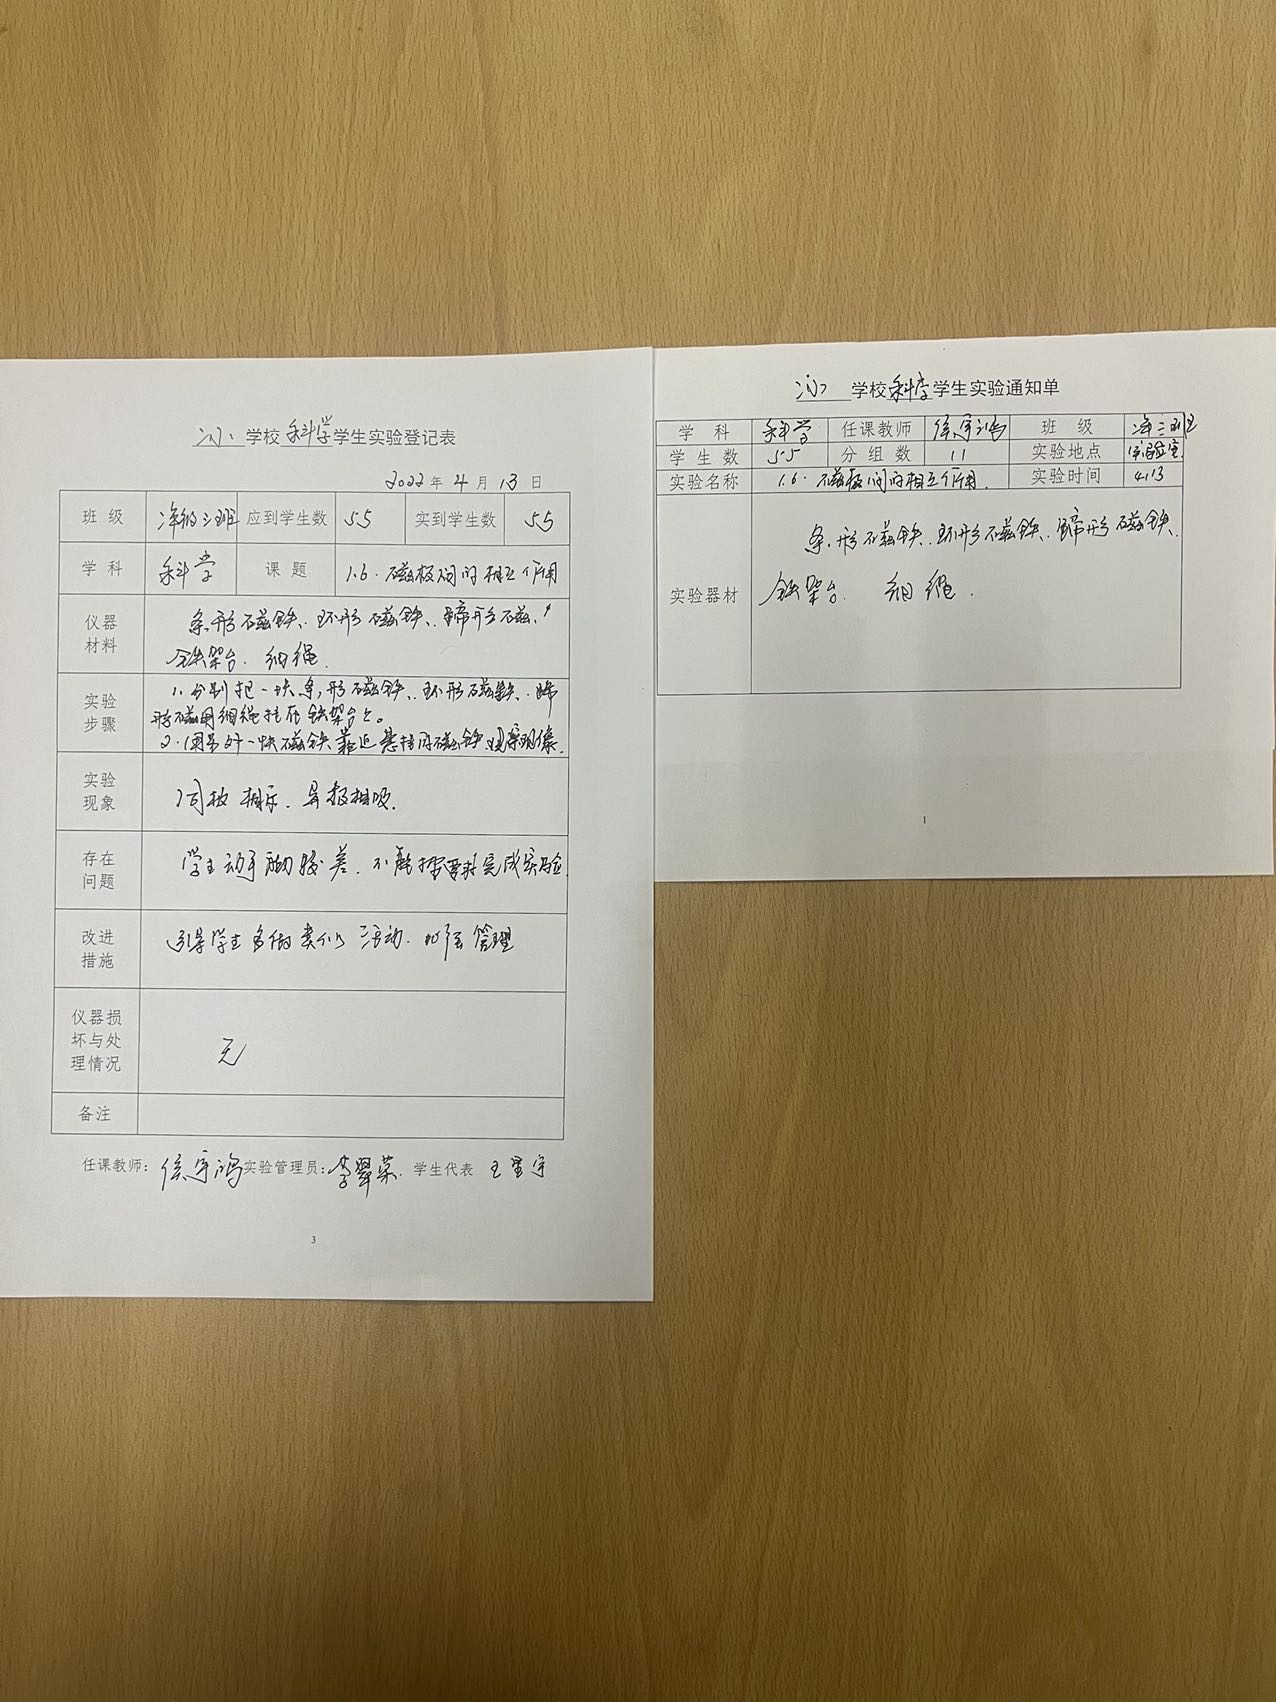 学校科学学生实验登记表
2022年4月13日
班级 应到学生数 55 实到学生数 55
学科 科学 课题 1.6.磁极间的相互作用
仪器材料 条形磁铁、环形磁铁、蹄形磁、
铁架台、细绳.
实验步骤 1.分别把一块条形磁铁、环形磁铁、蹄
形磁用细绳挂在铁架台上。
2.用另外一块磁铁靠近悬挂的磁铁,观察现像.
实验现象 同极相斥.异极相吸.
存在问题 学生动手能力较差.不能按要求完成实验.
改进措施 引导学生多做类似活动.加强管理
仪器损坏与处理情况 无
备注
任课教师:侯宇鸿 实验管理员:李翠荣. 学生代表 王星宇
3
学校科学学生实验通知单
学科 科学 任课教师 侯宇鸿 班级
学生数 55 分组数 11 实验地点 实验室
实验名称 1.6.磁极间的相互作用. 实验时间 4.13
条形磁铁、环形磁铁、蹄形磁铁、
实验器材 铁架台. 细绳.
1